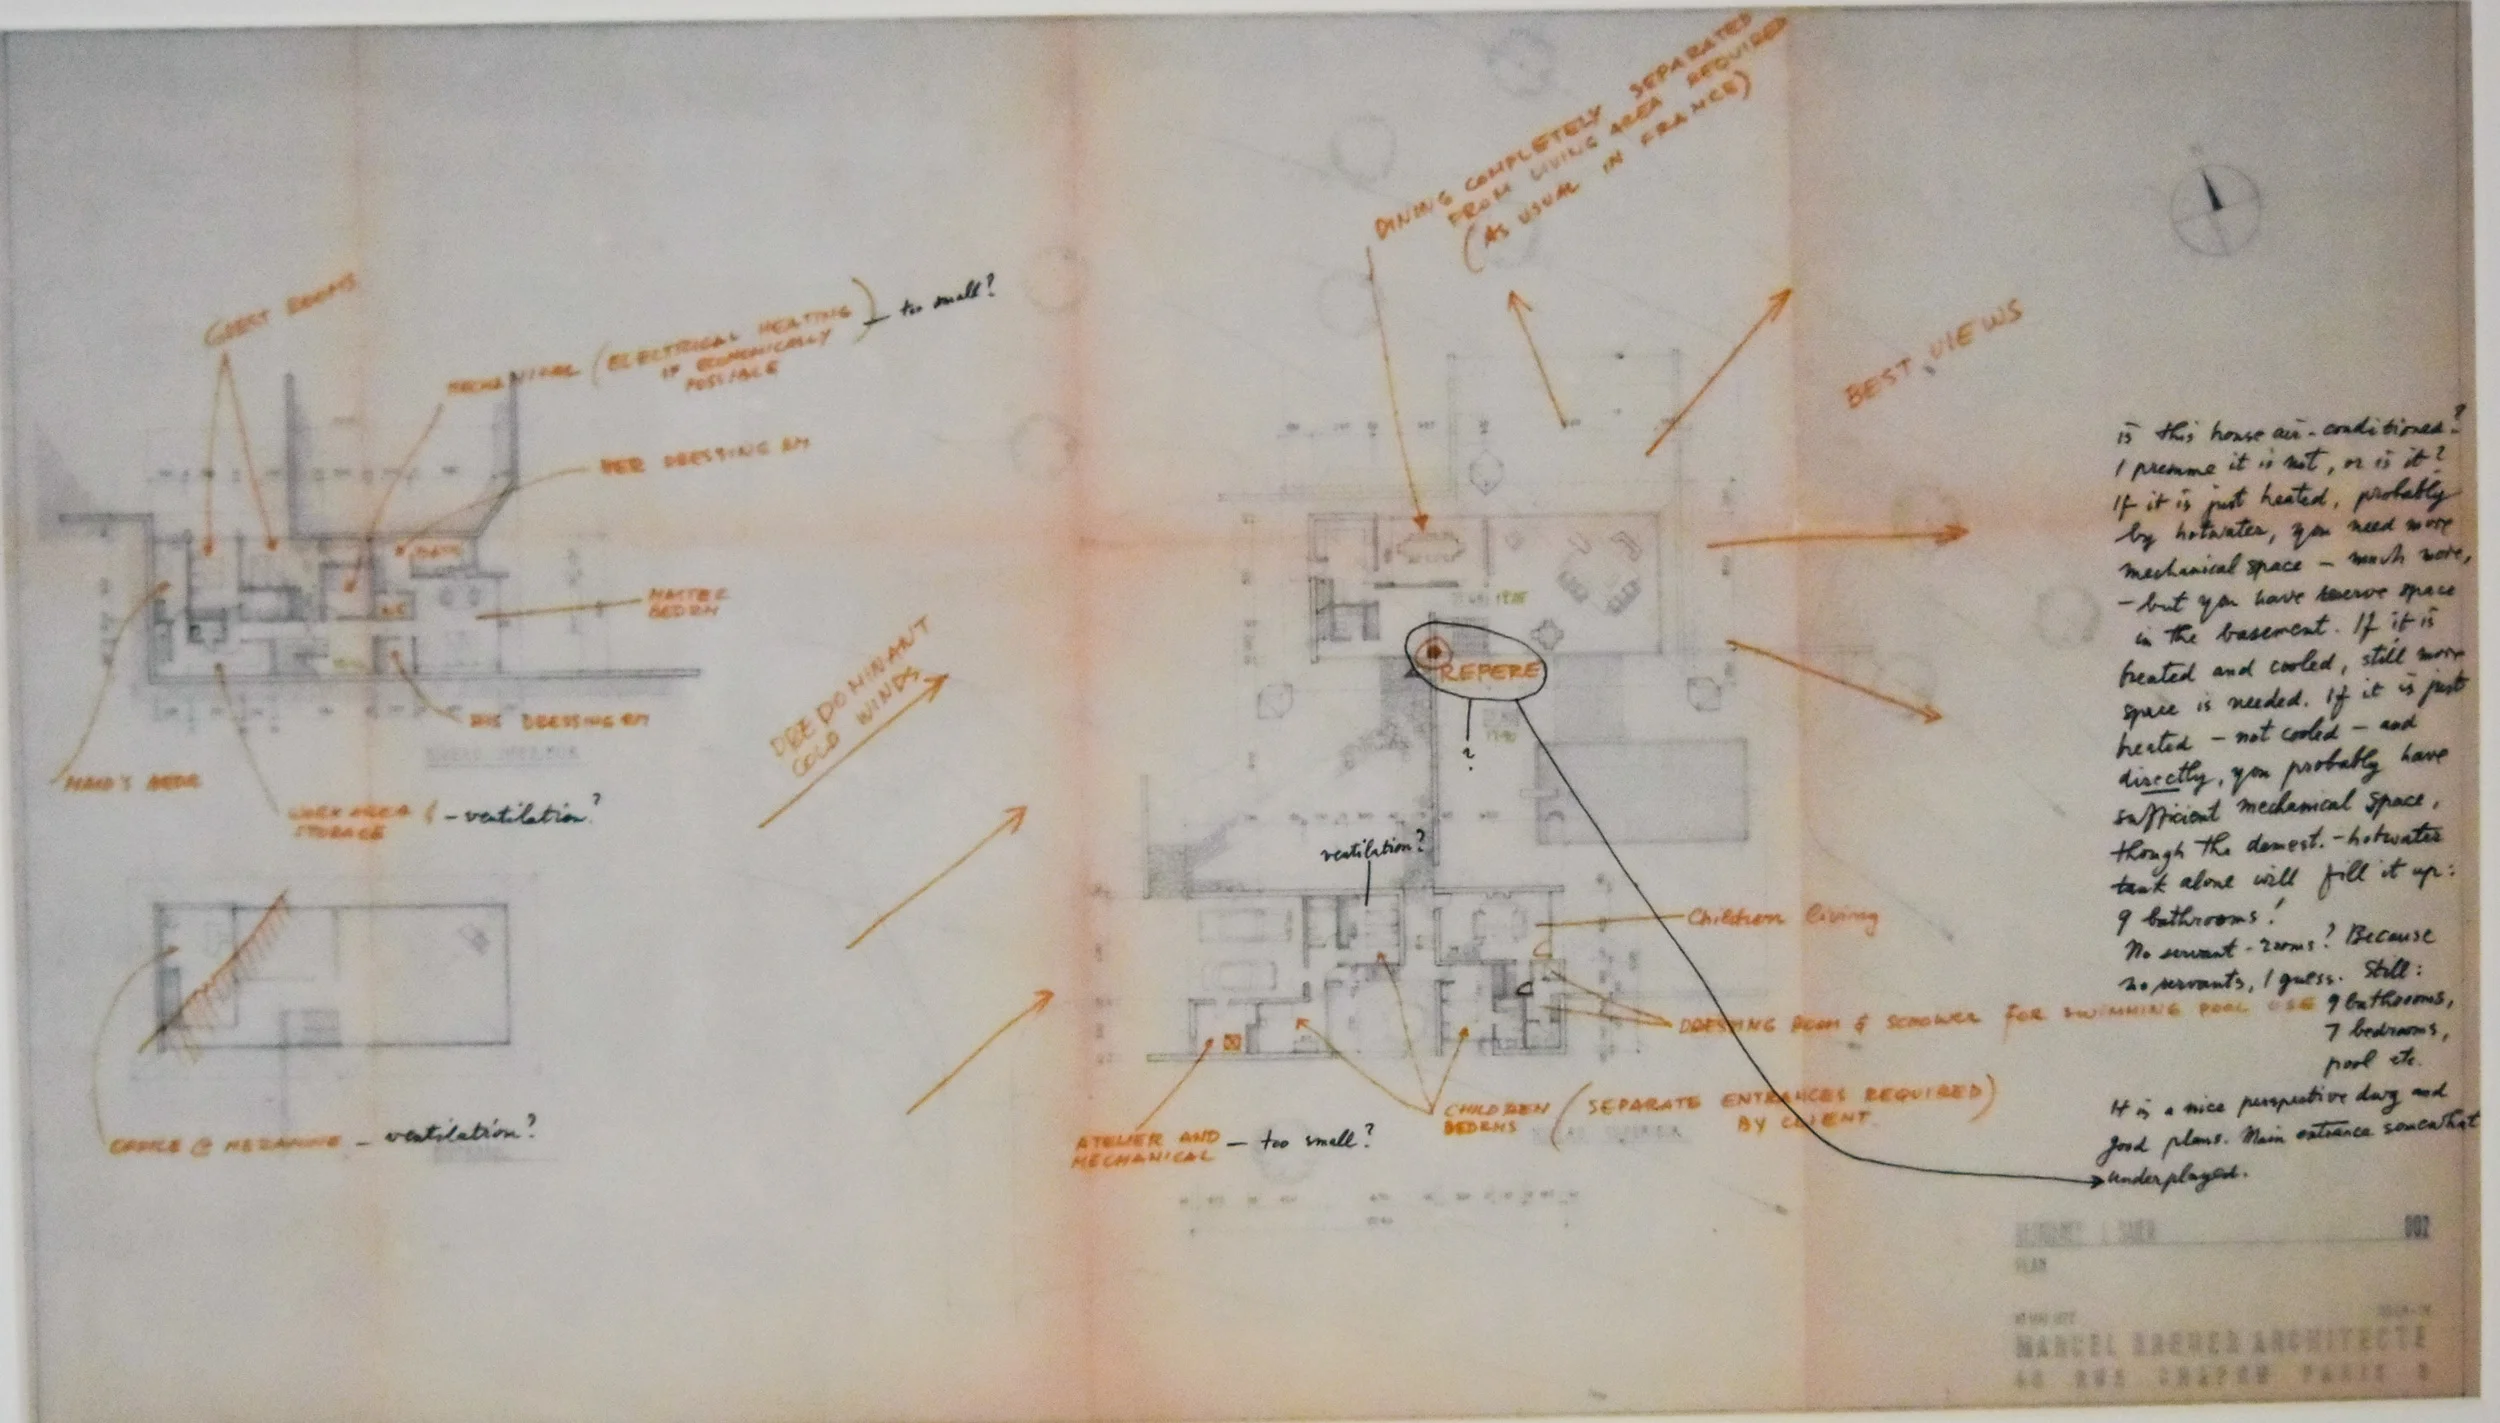 DINING COMPLETELY SEPARATED
FROM LIVING AREA REQUIRED
(AS USUAL IN FRANCE)
GUEST ROOMS
MECHANICAL (ELECTRICAL HEATING
IF ECONOMICALLY
POSSIBLE)
— too small?
HER DRESSING RM
BATH
MASTER
BEDRM
HIS DRESSING RM
MAID'S BEDR
WORK AREA &
STORAGE
— ventilation?
OFFICE @ MEZANINE — ventilation?
PREDOMINANT
COLD WINDS
BEST VIEWS
REPERE
?
ventilation?
Children living
DRESSING ROOM & SCHOWER FOR SWIMMING POOL USE
CHILDREN
BEDRMS
(SEPARATE ENTRANCES REQUIRED)
BY CLIENT
ATELIER AND
MECHANICAL
— too small?
is this house air-conditioned?
I presume it is not, or is it?
If it is just heated, probably
by hotwater, you need more
mechanical space — much more,
— but you have reserve space
in the basement. If it is
heated and cooled, still more
space is needed. If it is just
heated — not cooled — and
directly, you probably have
sufficient mechanical space,
though the domest.-hotwater
tank alone will fill it up:
9 bathrooms!
No servant-rooms? Because
no servants, I guess. Still:
9 bathrooms,
7 bedrooms,
pool etc.
It is a nice perspective dwg and
good plans. Main entrance somewhat
underplayed.
002
PLAN
MARCEL BREUER ARCHITECTE
48 RUE CHAPON PARIS 3